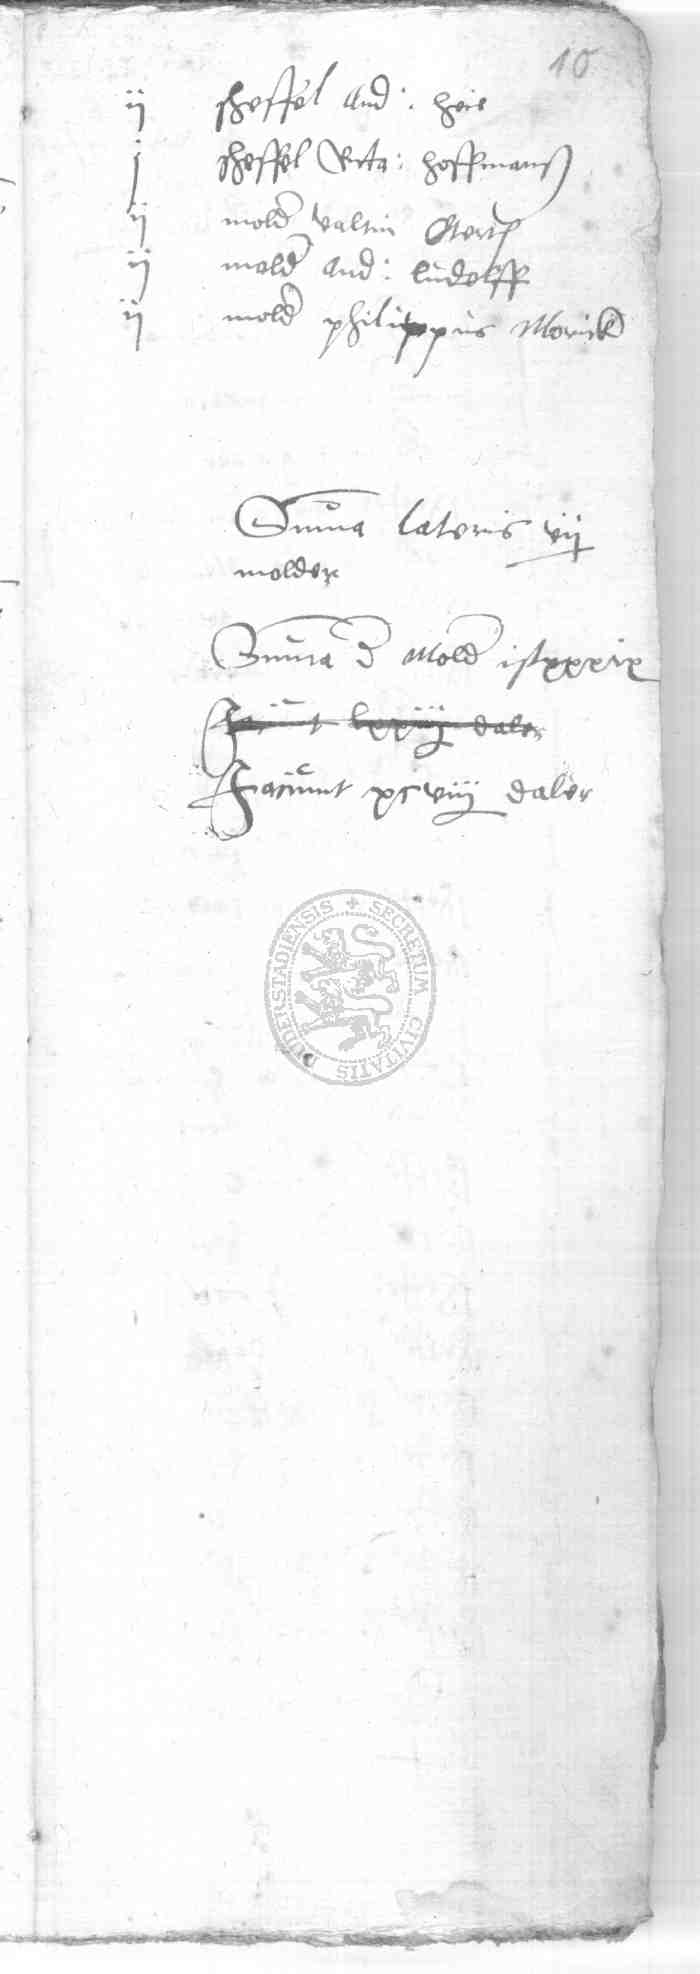 10
ij sheffel And: heis
j sheffel Urta: hoffmanß
ij mold valtin
ij mold And: ludolff
ij mold philippus Morick
Suma lateris vij
molder
Suma d Mold ist xxxix
Faciunt lxxiij daler
Faciunt xcviij daler
SECRETUM CIVITATIS DUDERSTADIENSIS